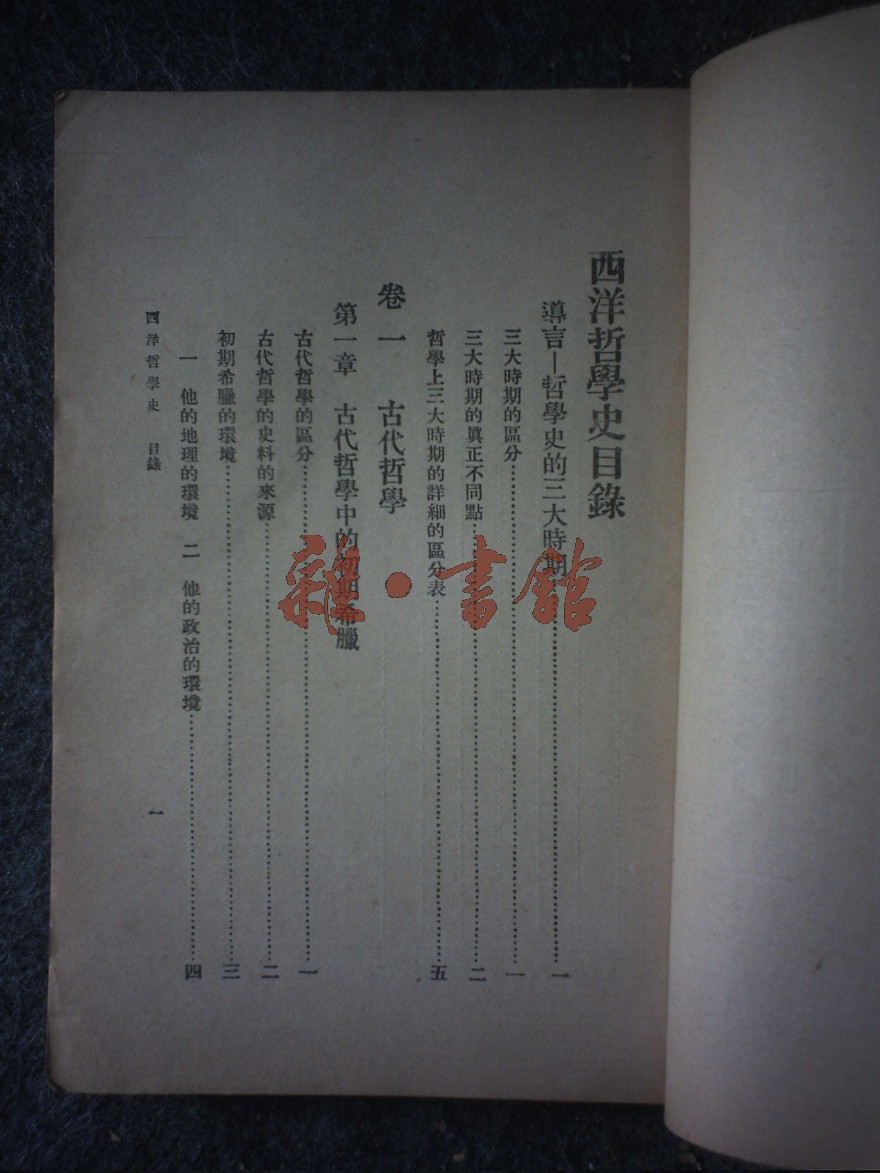 西洋哲學史目錄
導言—哲學史的三大時期……一
三大時期的區分……一
三大時期的眞正不同點……二
哲學上三大時期的詳細的區分表……五
卷一 古代哲學
第一章 古代哲學中的初期希臘
古代哲學的區分……一
古代哲學的史料的來源……二
初期希臘的環境……三
一 他的地理的環境 二 他的政治的環境……四
西洋哲學史 目錄
一
雜·書館